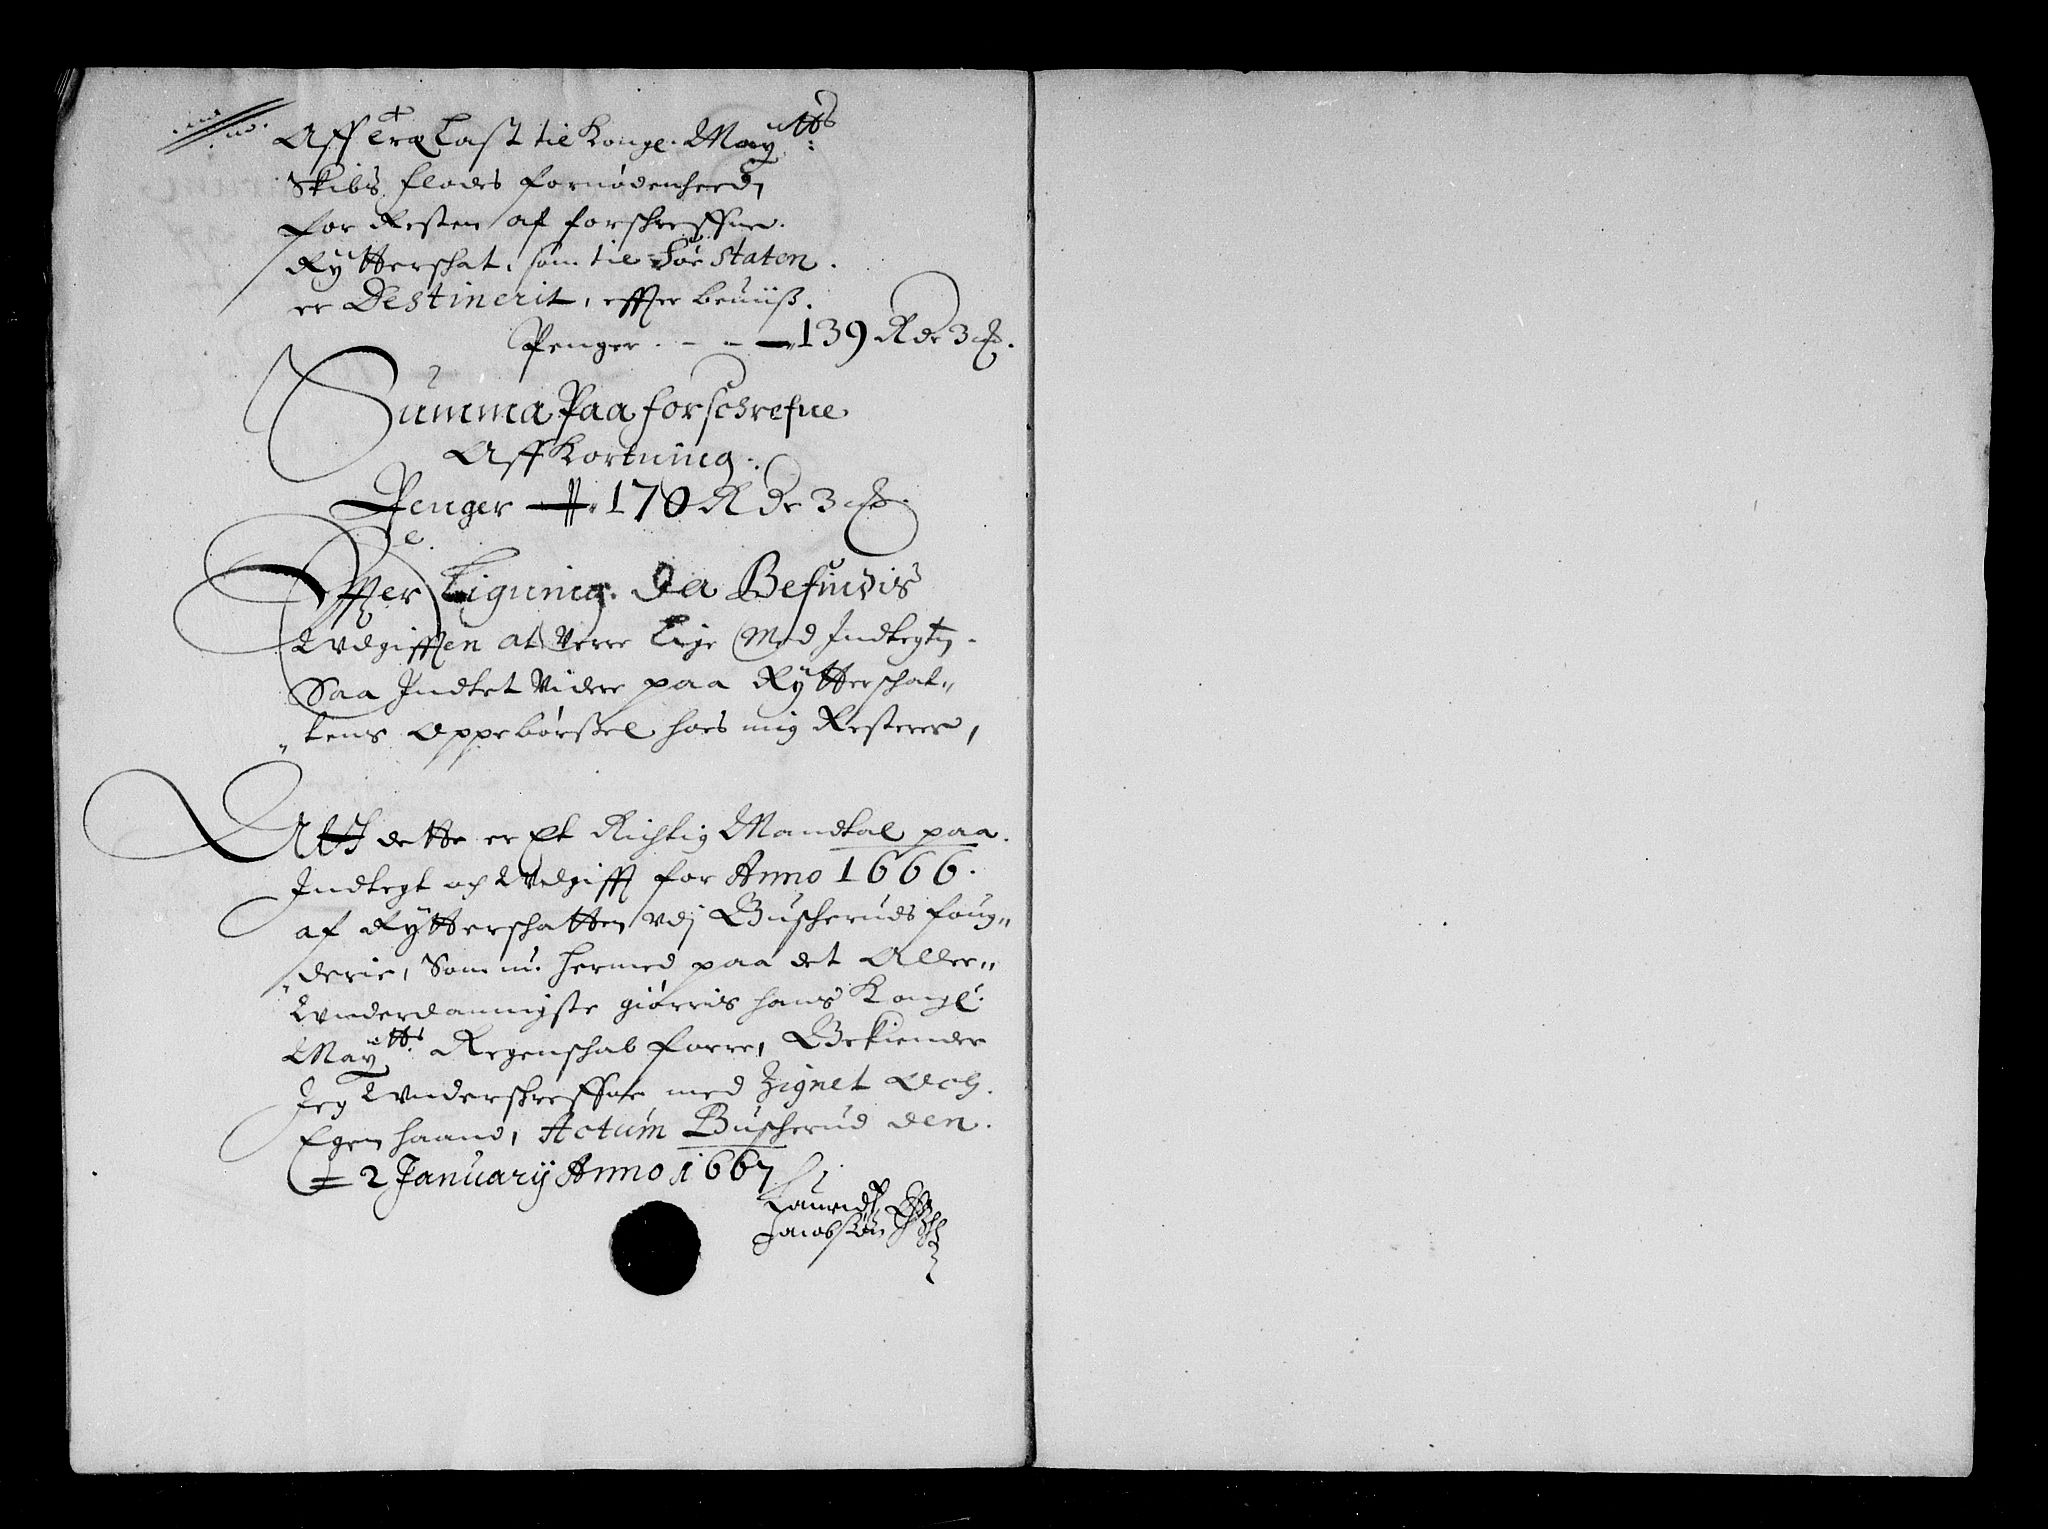 Aff træ Last til Kongl. Maÿtts:
Skibs flodes fornødenheed,
for Resten af forschreffne
Rÿtterschat, som til Søe Staten
er Destinerit, effter beuiiß.
Penger - - - 139 Rdr 3 ß.
Summa Paa forschrefne
Aff Kortning.
Penger 170 Rdr 3 ß.
Effter Ligning da Befindis
Wdgifften at Verre Lige Med Indtegten
Saa Indtet Videre paa Rÿtterschat-
tens Oppebørßel hoes mig Resterer,
Att dette er Et Richtig Mandtal paa
Indtegt och Wdgifft for Anno 1666.
af Rÿtterschatten vdj Buscheruds foug-
derie, Som nu hermed paa det Aller-
Vnderdannigste giørris hans Kongl.
Maÿtts: Regenschab forre, Bekiender
Jeg Vnderskreffne med Zignet Och
Egen haand, Actum Buscherud den
2 Januarij Anno 1667
Lauridtz
Jacobsøn